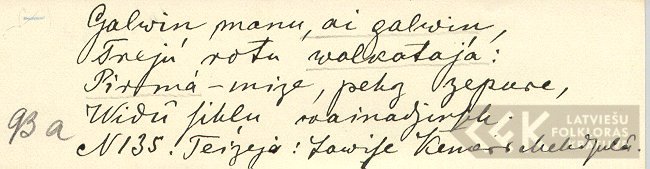 Galwin manu, ai galwin,
Treju rotu walkatajá:
Pirmá - mize, pehz zepure,
Widû sihlu wainadzinsh.
93 a
N 135. Teizeja: Lawise
LATVIEŠU
FOLKLORAS